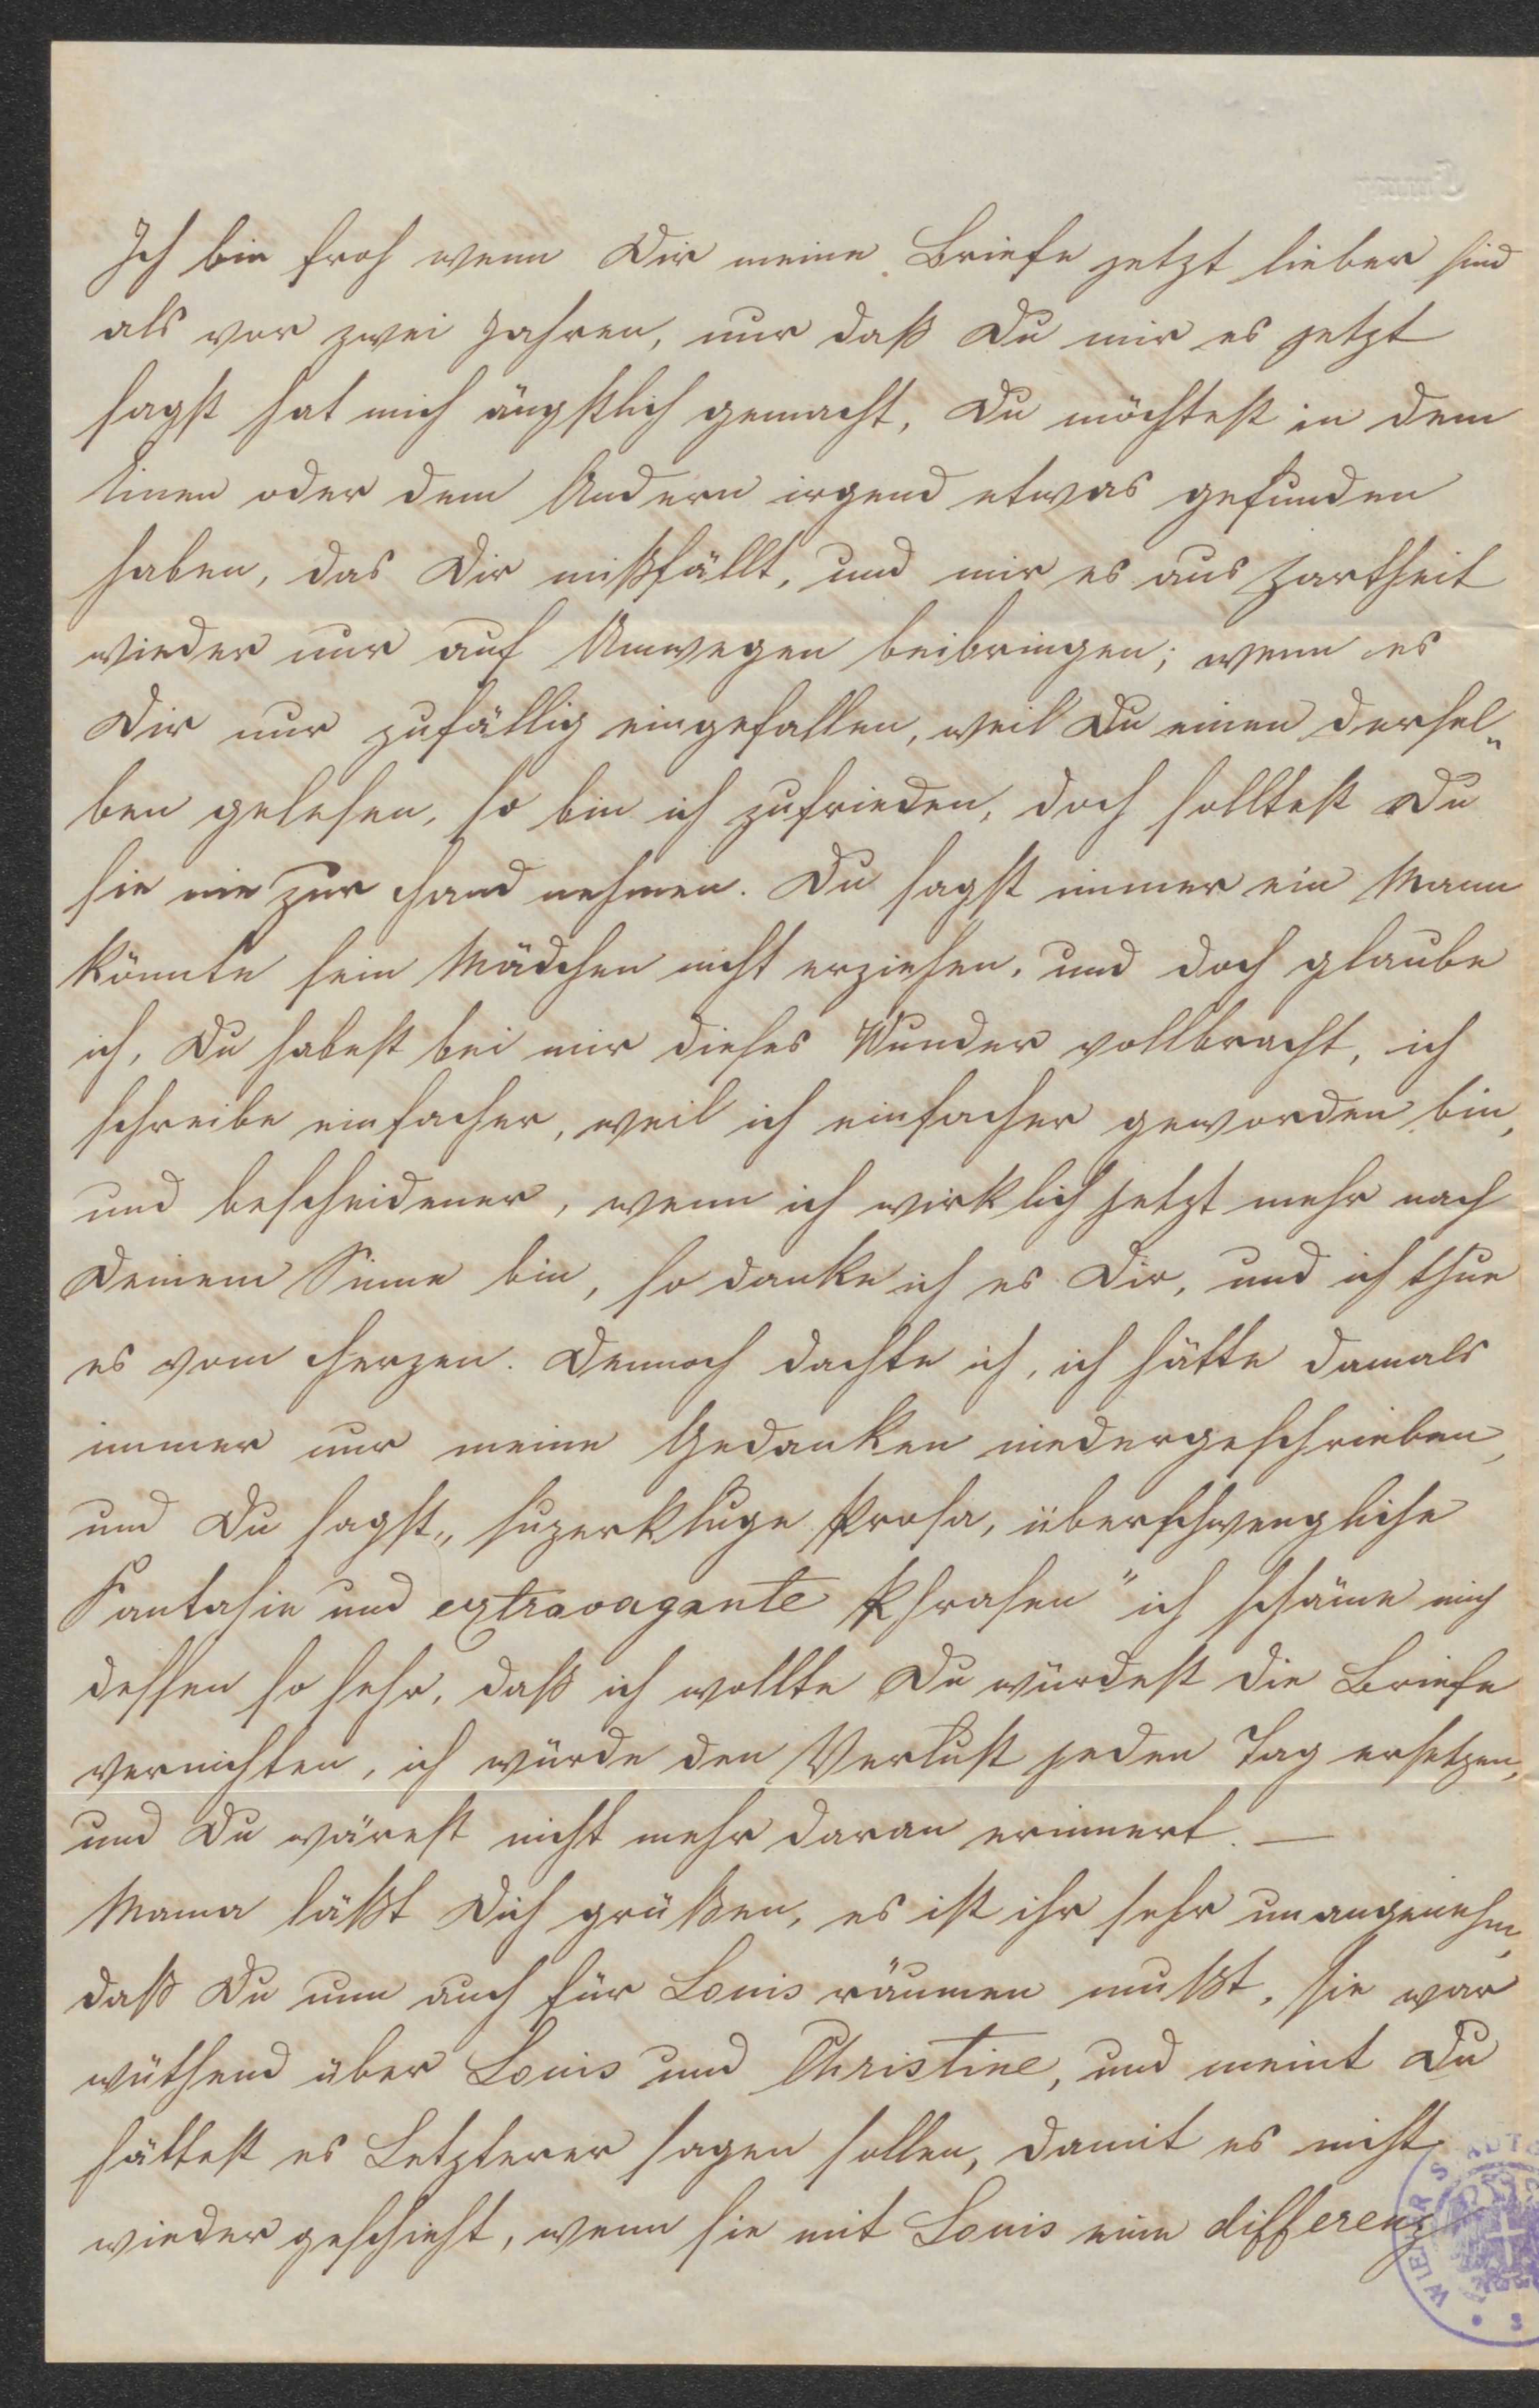 Ich bin froh wenn Dir meine Briefe jetzt lieber sind
als vor zwei Jahren, nur daß Du mir es jetzt
sagst hat mich ängstlich gemacht, Du möchtest in dem
Einen oder dem Andern irgend etwas gefunden
haben, das Dir mißfällt, und mir es aus Zartheit
wieder nur auf Umwegen beibringen; wenn es
Dir nur zufällig eingefallen, weil Du einen dersel„
ben gelesen, so bin ich zufrieden, doch solltest Du
sie nie zur Hand nehmen. Du sagst immer ein Mann
könnte sein Mädchen nicht erziehen, und doch glaube
ich, Du habest bei mir dieses Wunder vollbracht, ich
schreibe einfacher, weil ich einfacher geworden bin,
und bescheidener, wenn ich wirklich jetzt mehr nach
Deinem Sinne bin, so danke ich es Dir, und ich thue
es vom Herzen. Dennoch dachte ich, ich hätte damals
immer nur meine Gedanken niedergeschrieben,
und Du sagst „superkluge Prosa, überschwengliche
Fantasie und extravagante Phrasen" ich schäme mich
dessen so sehr, daß ich wollte Du würdest die Briefe
vernichten, ich würde den Verlust jeden Tag ersetzen,
und Du wärest nicht mehr daran erinnert. —
Mama läßt Dich grüßen, es ist ihr sehr unangenehm,
daß Du nun auch für Louis räumen mußt, sie war
wüthend über Louis und Christine, und meint Du
hättest es Letzterer sagen sollen, damit es nicht
wieder geschieht, wenn sie mit Louis eine differenz